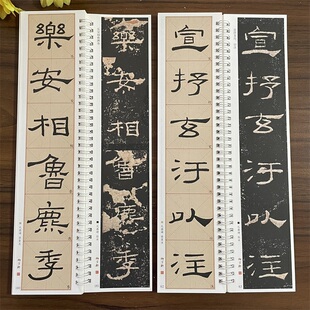 樂安相魯麃季
樂安相魯麃季
宣抒玄汙以注
宣抒玄汙以注